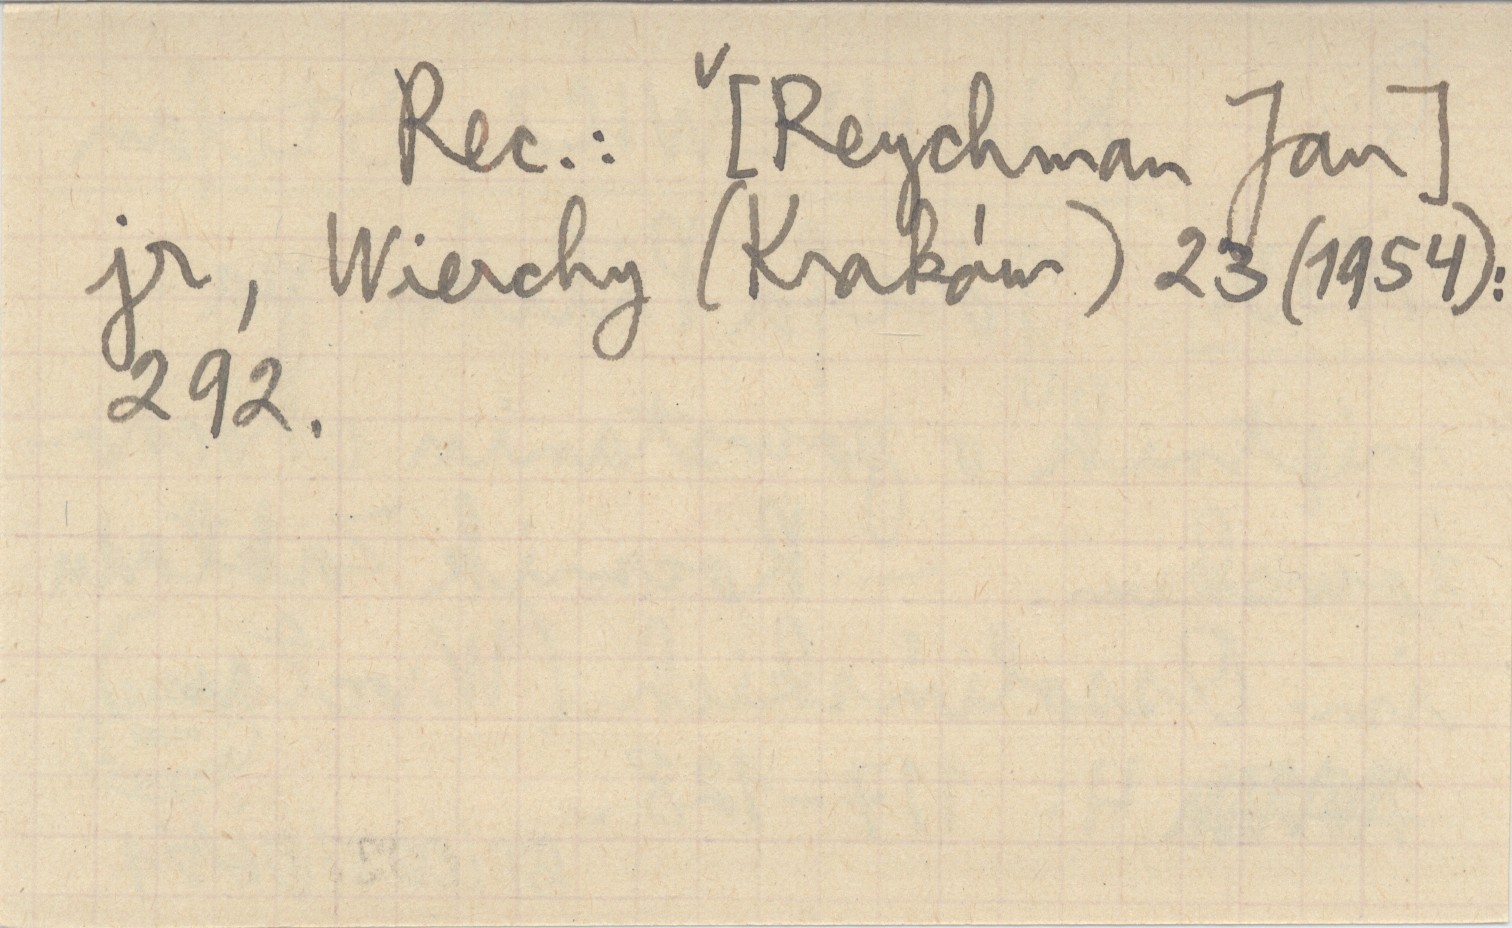 Rec.: [Reychman Jan]
jr, Wierchy (Kraków) 23 (1954):
292.